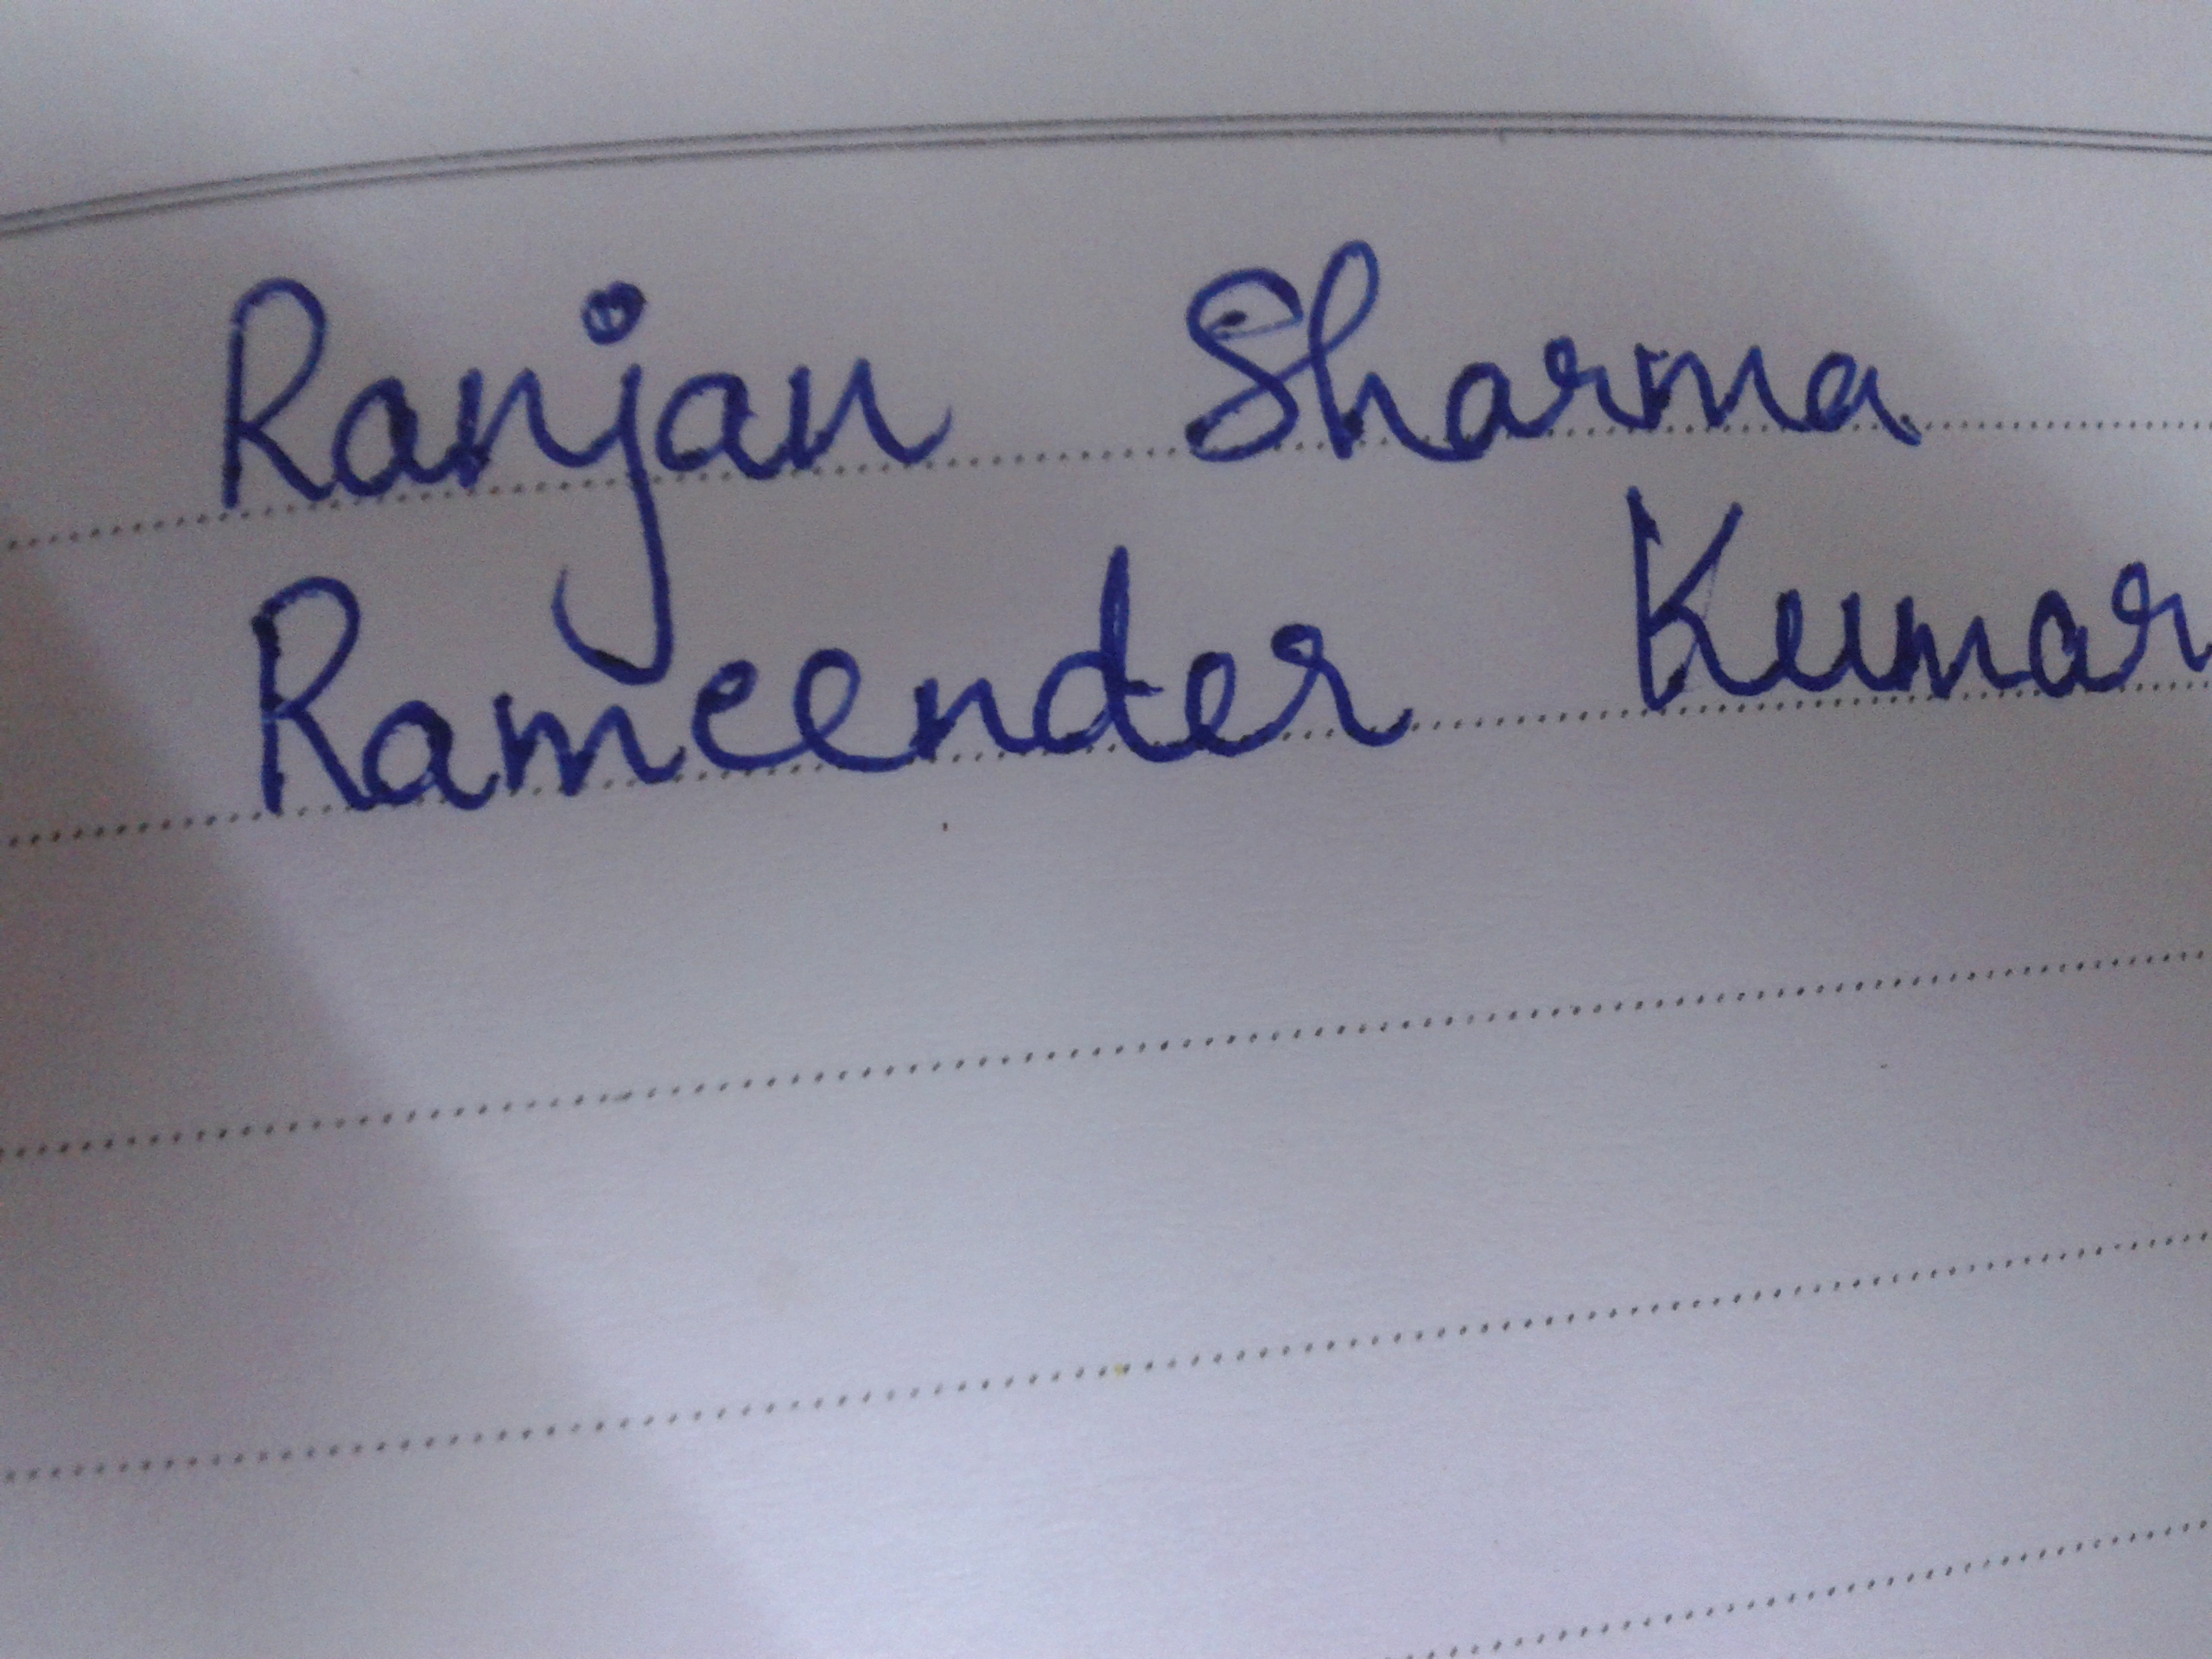 Ranjan Sharma
Rameender Kumar